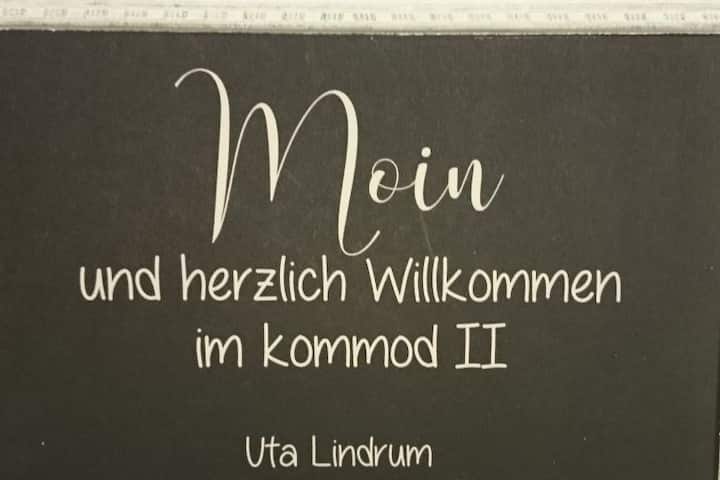 Moin
und herzlich Willkommen
im kommod II
Uta Lindrum